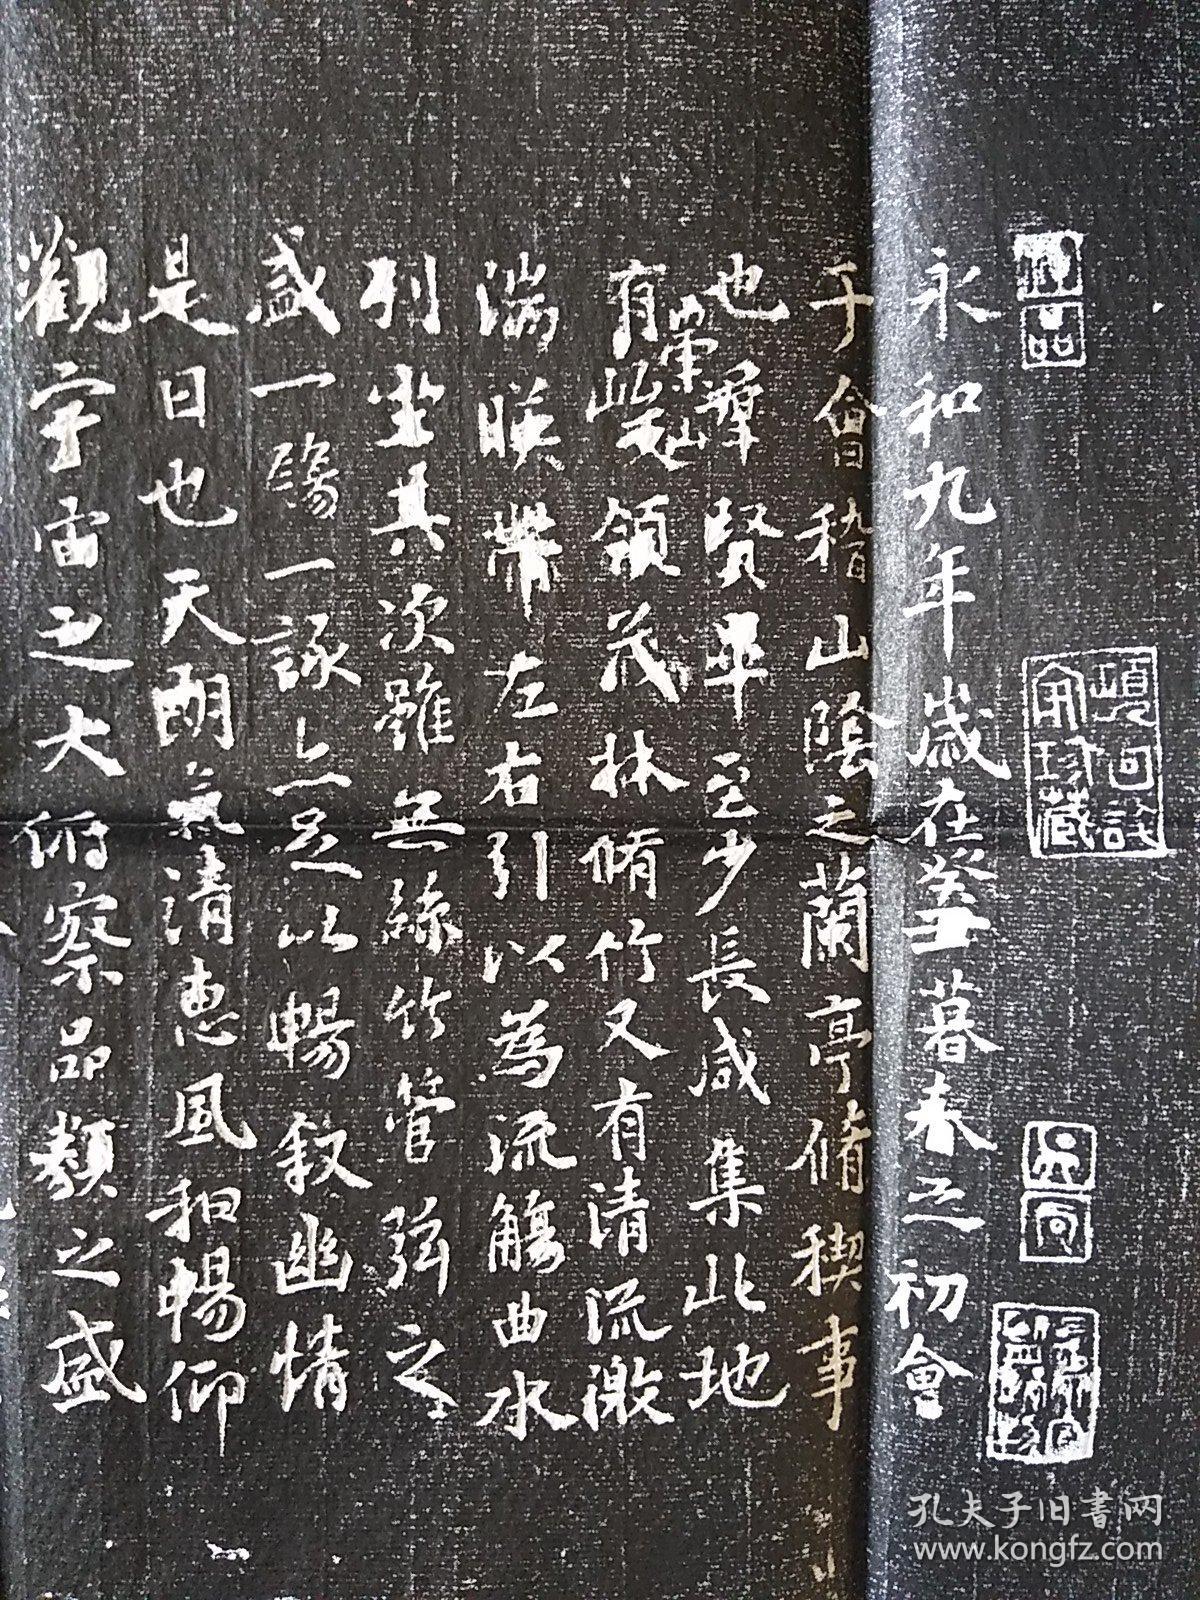 永和九年歲在癸丑暮春之初會
于會稽山陰之蘭亭脩稧事
也羣賢畢至少長咸集此地
有崇山峻領茂林脩竹又有清流激
湍暎帶左右引以為流觴曲水
列坐其次雖無絲竹管弦之
盛一觴一詠亦足以暢敘幽情
是日也天朗氣清惠風和暢仰
觀宇宙之大俯察品類之盛
孔夫子旧書网
www.kongfz.com